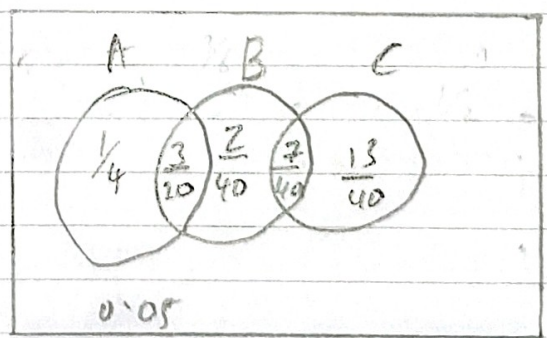 A B C
1/4 3/20 2/40 7/40 13/40
0·05